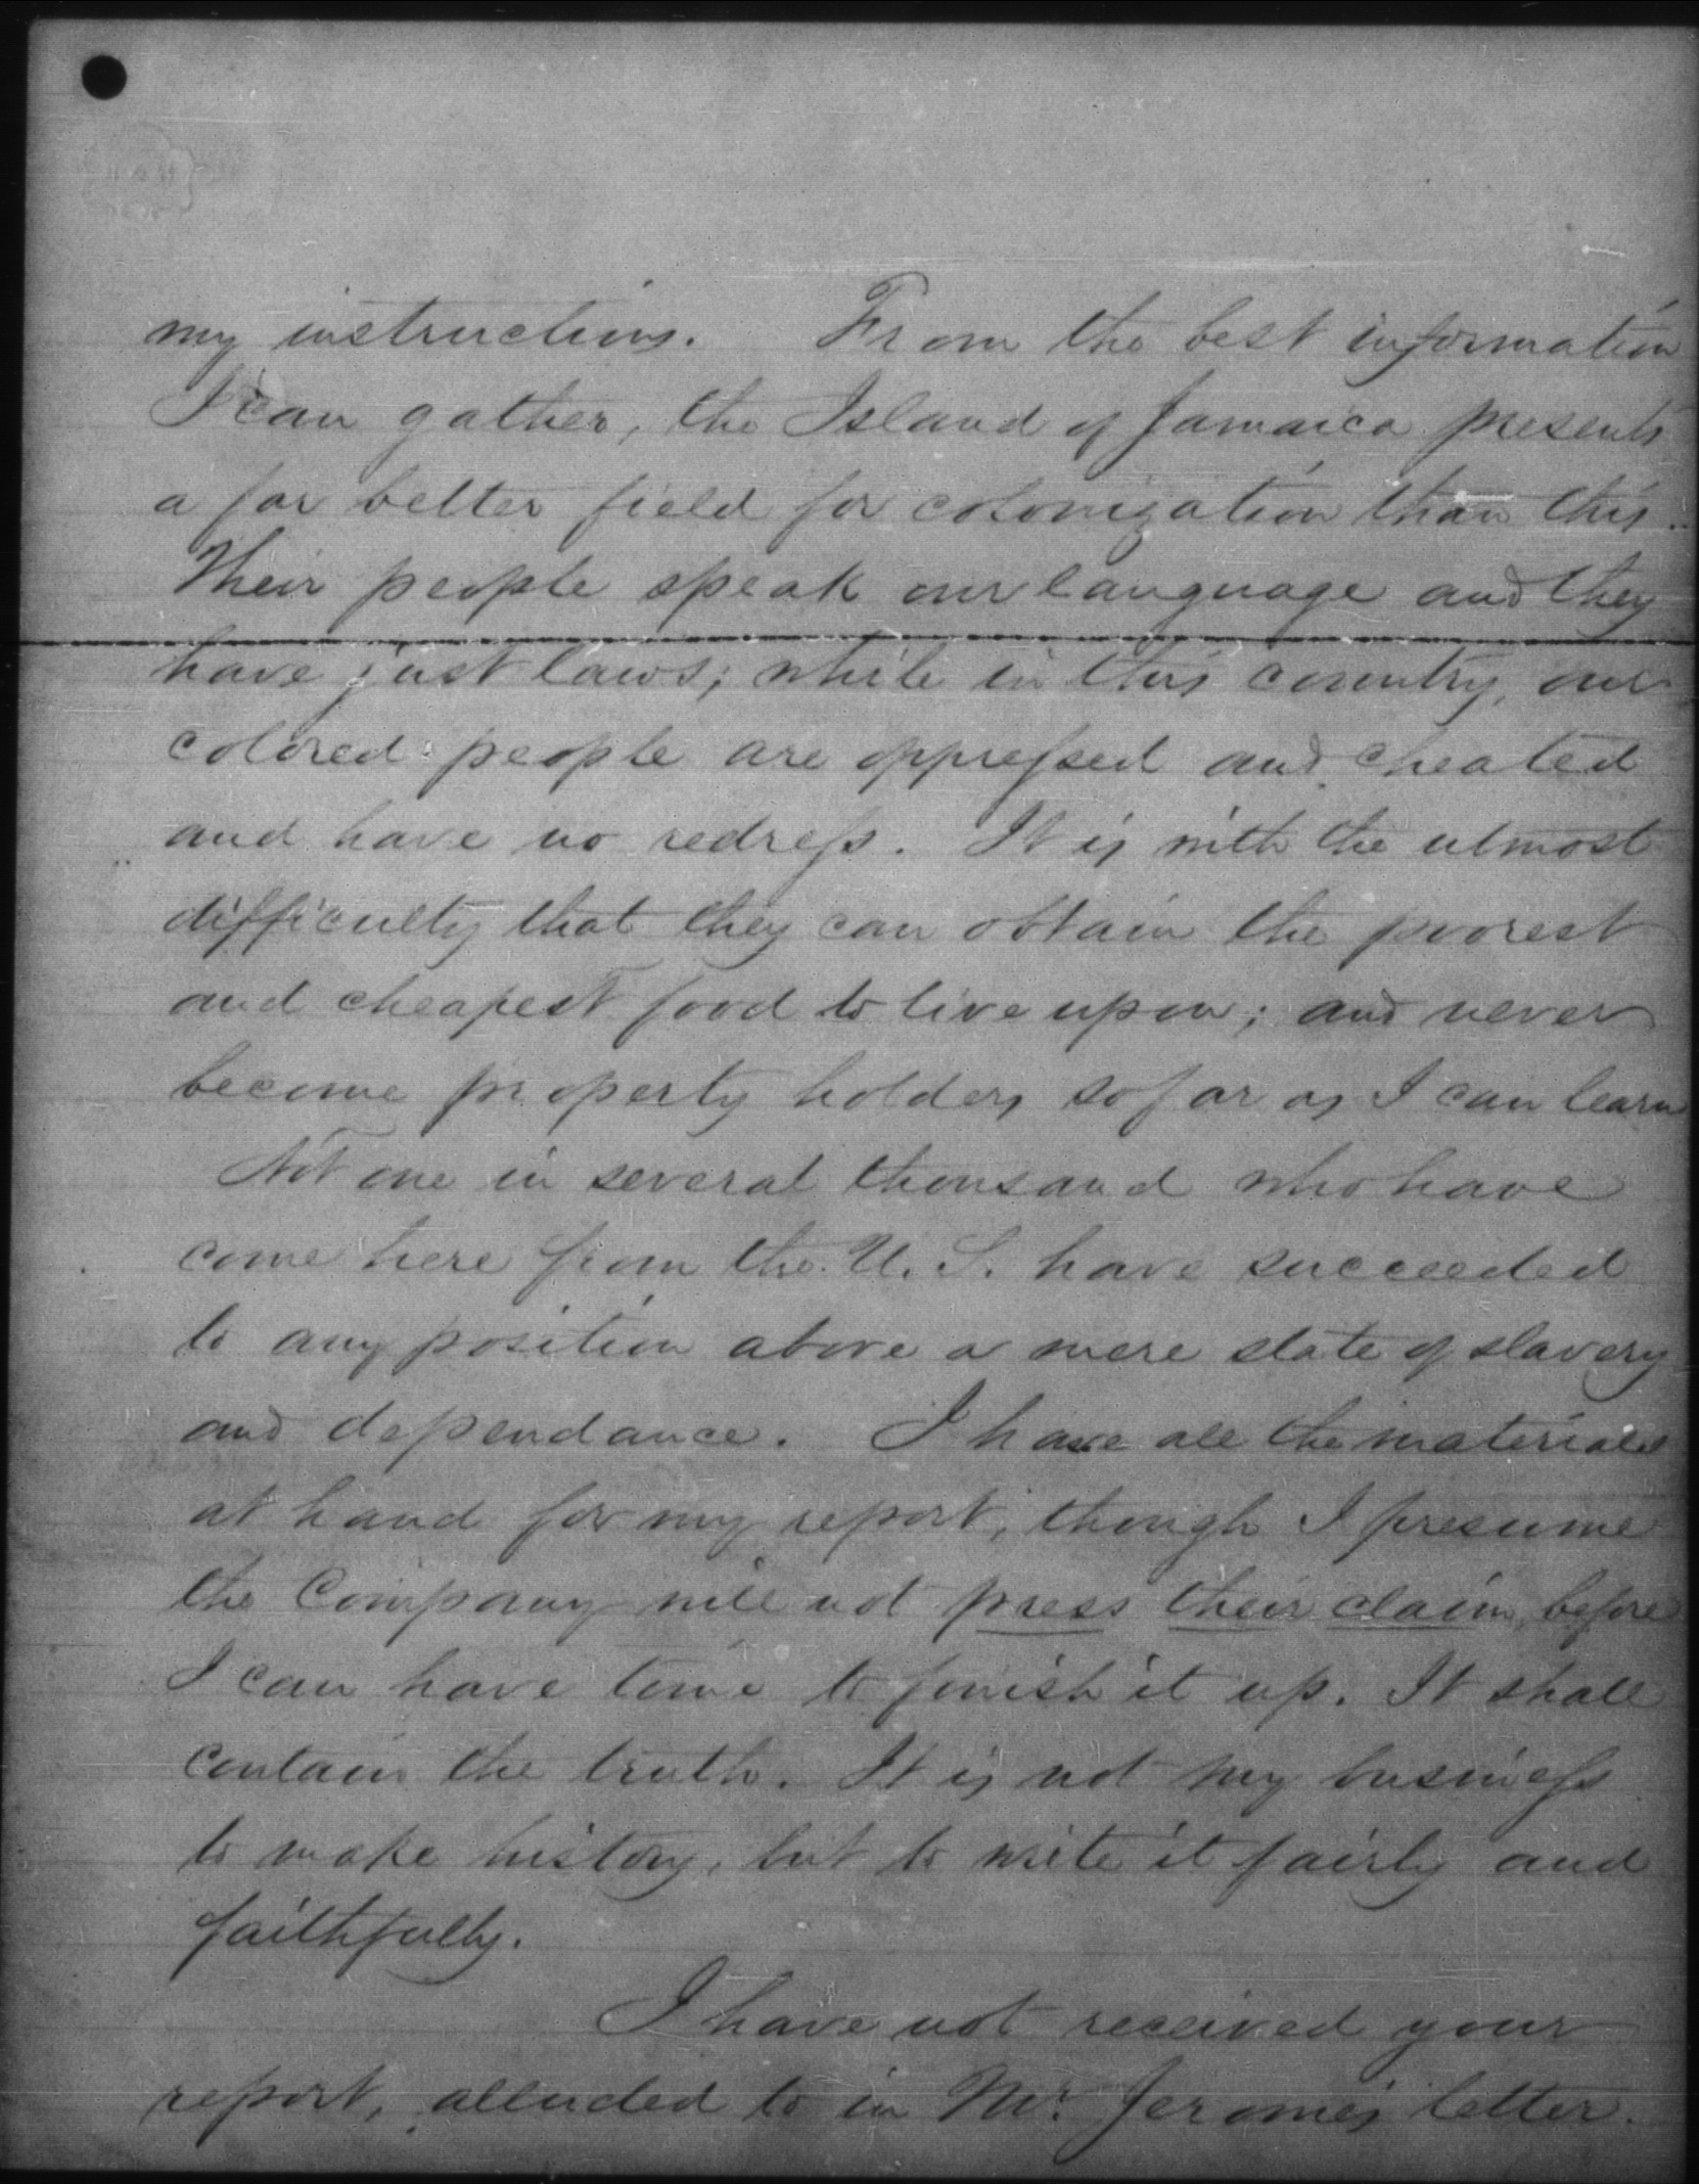 my instructions. From the best information
I can gather, the Island of Jamaica presents
a far better field for colonization than this.
Their people speak our language and they
have just laws; while in this country, our
colored people are oppressed and cheated
and have no redress. It is with the utmost
difficulty that they can obtain the poorest
and cheapest food to live upon; and never
become property holders so far as I can learn
Not one in several thousand who have
come here from the U. S. have succeeded
to any position above a mere state of slavery
and dependance. I have all the materials
at hand for my report, though I presume
the Company will not press their claim, before
I can have time to finish it up. It shall
contain the truth. It is not my business
to make history, but to write it fairly and
faithfully.
I have not received your
report, alluded to in Mr. Jerome's letter.